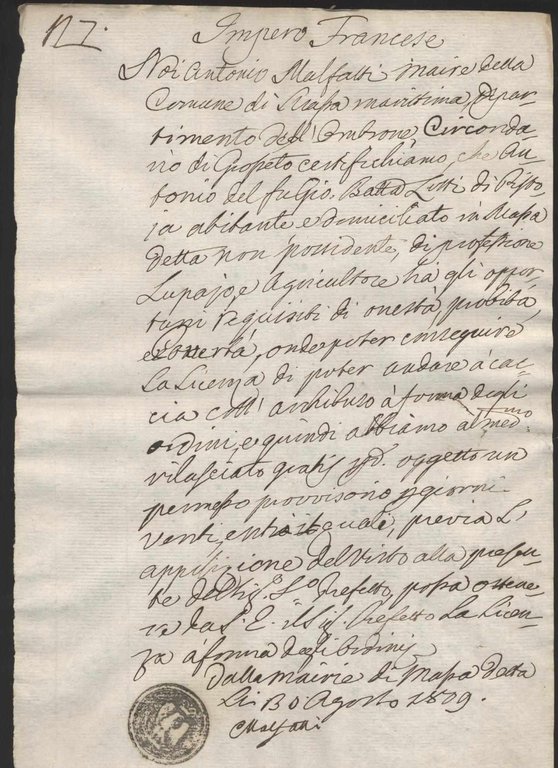 122.
Impero Francese
Noi Antonio Malfatti Maire della
Comune di Massa marittima, Dipar-
timento dell'Ombrone, Circonda-
rio di Grosseto certifichiamo, che An-
tonio del fu Gio. Batta Lotti di Pisto-
ja abitante e domiciliato in Massa
detta non possidente, di professione
Lupajo, e Agricoltore hà gli oppor-
tuni requisiti di onestà probità,
onde poter conseguire
La Licenza di poter andare a cac-
cia coll'archibuso à forma degli
ordini, e quindi abbiamo al med.mo
rilasciato gratis pd. oggetto un
permesso provvisorio p giorni
venti, entro il quale, previa l'
apposizione del visto alla presen-
te del Sig.e S.o Prefetto, possa ottene-
re da S. E. il Sig. Prefetto La Licen-
za à forma degli Ordini
Dalla Mairie di Massa detta
Li 30 Agosto 1809.
Malfatti